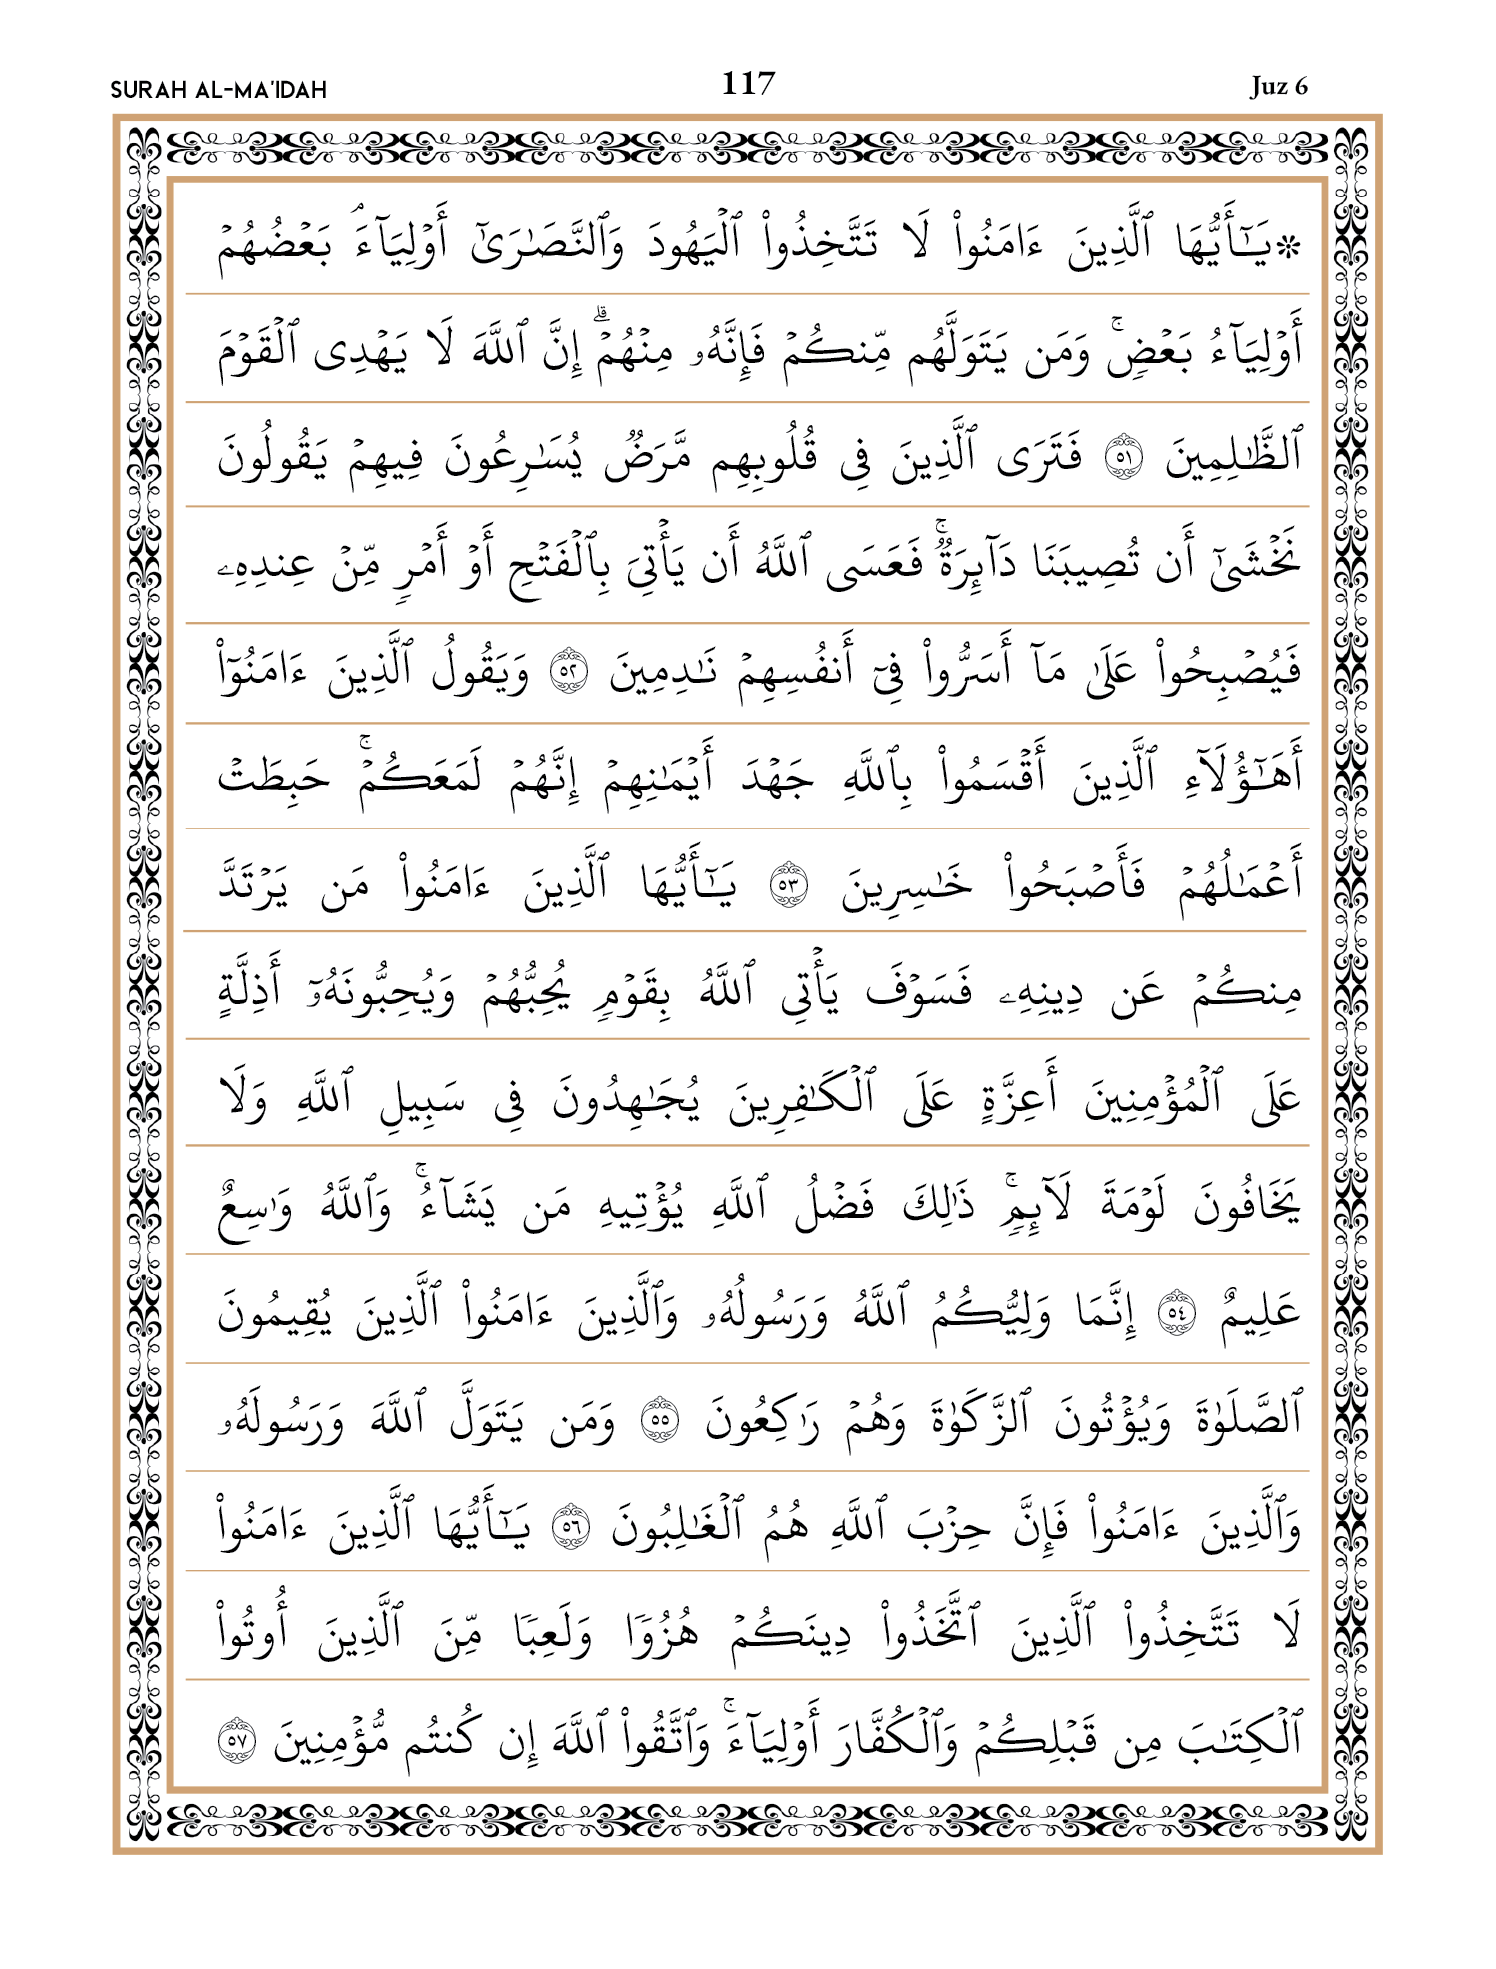 SURAH AL-MA'IDAH 117 Juz 6
۞يَـٰٓأَيُّهَا ٱلَّذِينَ ءَامَنُوا۟ لَا تَتَّخِذُوا۟ ٱلْيَهُودَ وَٱلنَّصَـٰرَىٰٓ أَوْلِيَآءَ ۘ بَعْضُهُمْ
أَوْلِيَآءُ بَعْضٍ ۚ وَمَن يَتَوَلَّهُم مِّنكُمْ فَإِنَّهُۥ مِنْهُمْ ۗ إِنَّ ٱللَّهَ لَا يَهْدِى ٱلْقَوْمَ
ٱلظَّـٰلِمِينَ ٥١ فَتَرَى ٱلَّذِينَ فِى قُلُوبِهِم مَّرَضٌ يُسَـٰرِعُونَ فِيهِمْ يَقُولُونَ
نَخْشَىٰٓ أَن تُصِيبَنَا دَآئِرَةٌ ۚ فَعَسَى ٱللَّهُ أَن يَأْتِىَ بِٱلْفَتْحِ أَوْ أَمْرٍ مِّنْ عِندِهِۦ
فَيُصْبِحُوا۟ عَلَىٰ مَآ أَسَرُّوا۟ فِىٓ أَنفُسِهِمْ نَـٰدِمِينَ ٥٢ وَيَقُولُ ٱلَّذِينَ ءَامَنُوٓا۟
أَهَـٰٓؤُلَآءِ ٱلَّذِينَ أَقْسَمُوا۟ بِٱللَّهِ جَهْدَ أَيْمَـٰنِهِمْ إِنَّهُمْ لَمَعَكُمْ ۚ حَبِطَتْ
أَعْمَـٰلُهُمْ فَأَصْبَحُوا۟ خَـٰسِرِينَ ٥٣ يَـٰٓأَيُّهَا ٱلَّذِينَ ءَامَنُوا۟ مَن يَرْتَدَّ
مِنكُمْ عَن دِينِهِۦ فَسَوْفَ يَأْتِى ٱللَّهُ بِقَوْمٍ يُحِبُّهُمْ وَيُحِبُّونَهُۥٓ أَذِلَّةٍ
عَلَى ٱلْمُؤْمِنِينَ أَعِزَّةٍ عَلَى ٱلْكَـٰفِرِينَ يُجَـٰهِدُونَ فِى سَبِيلِ ٱللَّهِ وَلَا
يَخَافُونَ لَوْمَةَ لَآئِمٍ ۚ ذَٰلِكَ فَضْلُ ٱللَّهِ يُؤْتِيهِ مَن يَشَآءُ ۚ وَٱللَّهُ وَٰسِعٌ
عَلِيمٌ ٥٤ إِنَّمَا وَلِيُّكُمُ ٱللَّهُ وَرَسُولُهُۥ وَٱلَّذِينَ ءَامَنُوا۟ ٱلَّذِينَ يُقِيمُونَ
ٱلصَّلَوٰةَ وَيُؤْتُونَ ٱلزَّكَوٰةَ وَهُمْ رَٰكِعُونَ ٥٥ وَمَن يَتَوَلَّ ٱللَّهَ وَرَسُولَهُۥ
وَٱلَّذِينَ ءَامَنُوا۟ فَإِنَّ حِزْبَ ٱللَّهِ هُمُ ٱلْغَـٰلِبُونَ ٥٦ يَـٰٓأَيُّهَا ٱلَّذِينَ ءَامَنُوا۟
لَا تَتَّخِذُوا۟ ٱلَّذِينَ ٱتَّخَذُوا۟ دِينَكُمْ هُزُوًا وَلَعِبًا مِّنَ ٱلَّذِينَ أُوتُوا۟
ٱلْكِتَـٰبَ مِن قَبْلِكُمْ وَٱلْكُفَّارَ أَوْلِيَآءَ ۚ وَٱتَّقُوا۟ ٱللَّهَ إِن كُنتُم مُّؤْمِنِينَ ٥٧